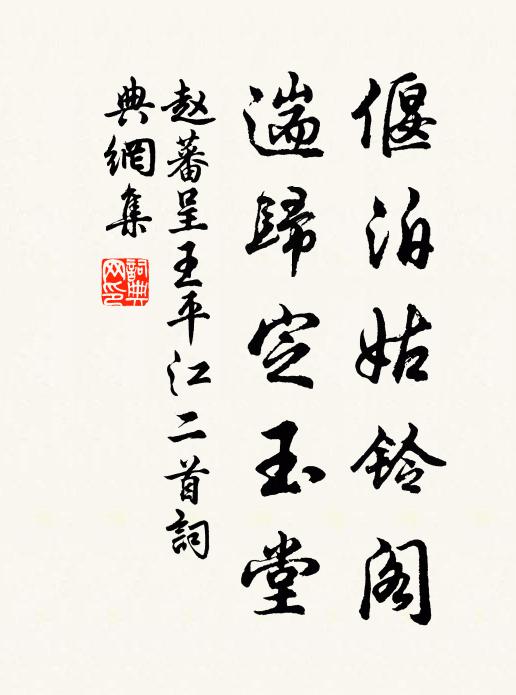 偃泊姑鈴阁
遄歸定玉堂
赵蕃呈王平江二首詞
典網集
詞典
网印